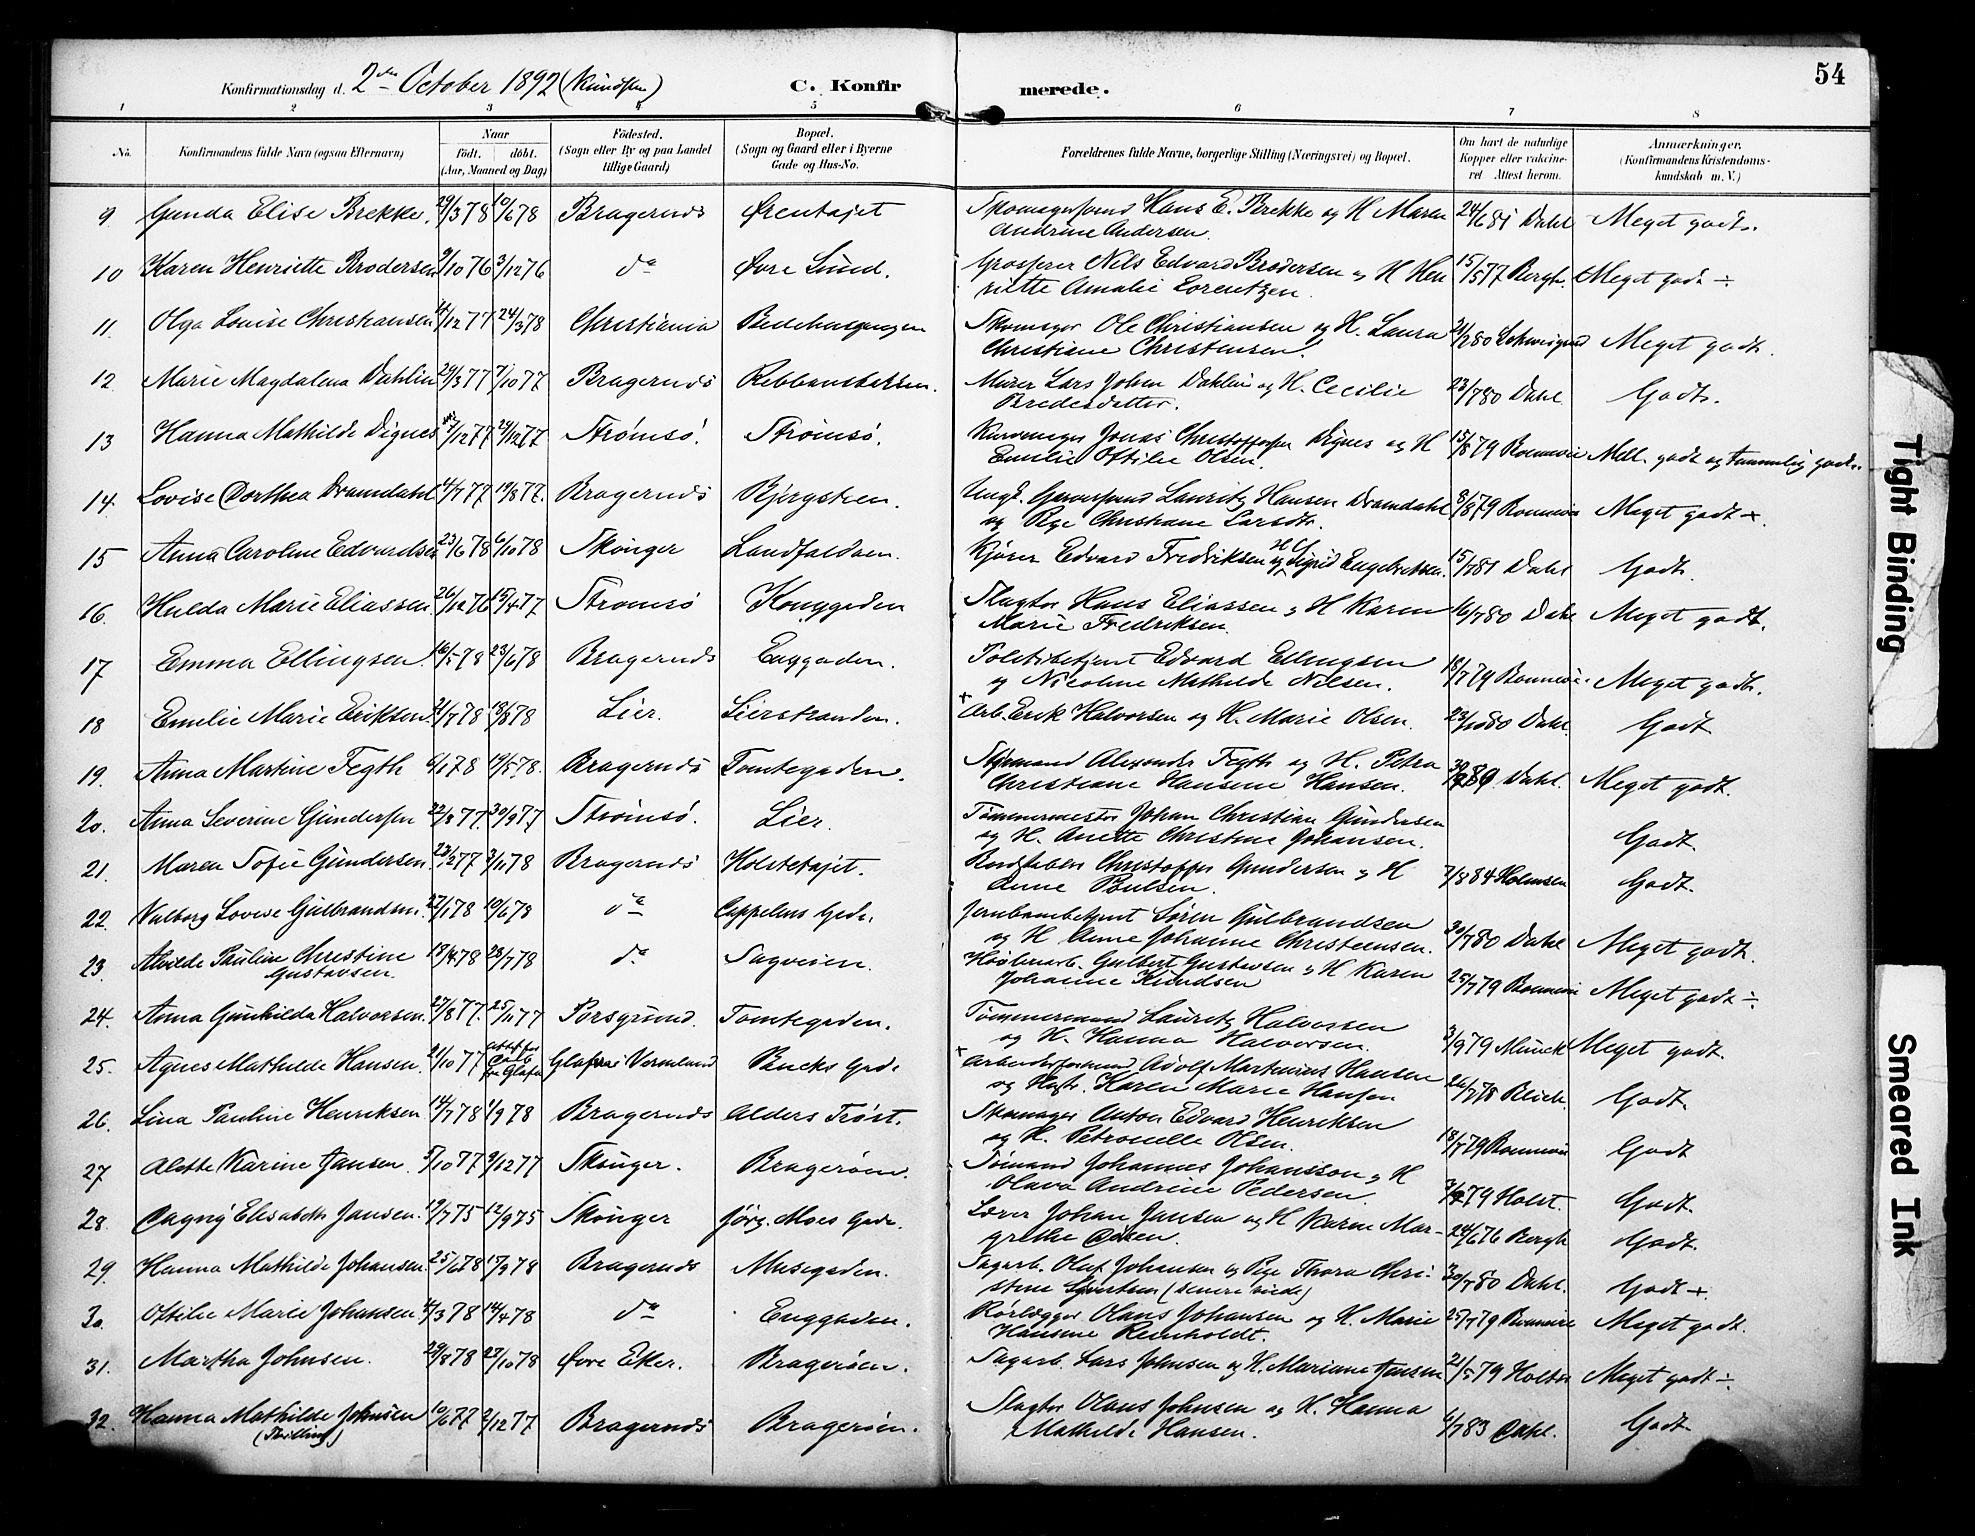 54
Konfirmationsdag d. 2den October 1892
C. Konfirmerede.
1 2 3 4 5 6 7 8
No. Konfirmandens fulde Navn (ogsaa Efternavn) Naar födt. döbt. (Aar, Maaned og Dag) Födested. (Sogn eller By og paa Landet tillige Gaard) Bopæl. (Sogn og Gaard eller i Byerne Gade og Hus-No. Forældrenes fulde Navne, borgerlige Stilling (Næringsvei) og Bopæl. Om havt de naturlige Kopper eller vakcineret Attest herom. Anmærkninger. (Konfirmandens Kristendomskundskab m. V.)
9 Gunda Elise Brekke. 29/3 78 10/6 78 Bragernæs Örentöjet Hans E. Brekke og H Maren Andrine Andersen. 24/6 81 Dahl Meget godt.
10 Karen Henriette Brodersen 9/10 76 3/12 76 do Øvre Sund. Grosserer Nils Edvard Brodersen og H Henriette Amalie Lorentzen. 15/5 77 Bergh. Meget godt ÷
11 Olga Lovise Christiansen 14/12 77 24/3 78 Christiania Bedehusgangen Skomager Ole Christiansen og H. Laura Christiane Christensen. Meget godt.
12 Marie Magdalena Dahlin 29/3 77 7/10 77 Bragernæs Rebbansbakken. Murer Lars Johan Dahlin og H. Cecilie Bredesdatter. 23/7 80 Dahl Godt.
13 Hanna Mathilde Dignes 12 77 29/12 77 Strömsö. Strömsö. Kurvmager Jonas Christoffersen Dignes og H Emilie Ottilie Olsen. 15/8 79 Roumeie Mell. godt og temmelig godt.
14. Lovise Dorthea Dramdahl 14/7 77 19/8 77. Bragernæs Bjergsteen. Ungk. Lauritz Hansen Dramdahl og Pige Christiane Larsdtr. 8/8 79 Meget godt +.
15 Anna Caroline Edvardsen 23/6 78 6/10 78 Skouger Landfaldöen. Kjører Edvard Fredriksen og H Sigrid Engebretsen. 15/7 81 Dahl Godt.
16. Hulda Marie Eliassen 26/12 76 15/4 77 Strømsø Konggaden Slagter Hans Eliassen og H Karen Marie Fredriksen. 16/7 80 Dahl Meget godt.
17 Emma Ellingsen. 16/5 78 23/6 78 Bragernæs Enggaden. Politibetjent Edvard Ellingsen og Nicoline Mathilde Nilsen. 18/7 79 Meget godt.
18 Emilie Marie Eriksen. 21/7 78 18/8 78 Lier. Lierstranden. Arb. Erik Halvorsen og H. Marie Olsen. 23/10 80 Dahl. Godt
19. Anna Martine Fegth 6/1 78 19/5 78. Bragernæs Tomtegaden. Styrmand Alexander Fegth og H. Petra Christiane Hansine Hansen. Dahl. Meget godt.
20. Anna Severine Gundersen 22/8 77. 30/9 77 Strömsö. Lier. Tömmermester Johan Christian Gundersen og H. Anette Christine Johansen. Godt.
21. Maren Sofie Gundersen 12 77 3/11 78 Bragernæs Holstetøjet. Christoffer Gundersen og H Anne Bulsen. 7/8 84 Holmsen Godt.
22. Valborg Lovise Gulbrandsen. 27/1 78 10/6 78 do Cappelens Gade. Jernbanebetjent Sören Gulbrandsen og H Anne Johanne Christensen. 30/7 80 Dahl Meget godt.
23. Alvilde Pauline Christine Gustavsen 19/4 78 28/7 78 do Sagveien. Gulbert Gustavsen og H Karen Johanne Knudsen 25/7 79 Meget godt ÷
24. Anna Gunhilda Halvorsen. 27/8 77. 25/11 77 Porsgrund. Tomtegaden. Tömmermand Lauritz Halvorsen og H. Hanna Halvorsen. 3/9 79 Munck Meget godt.
25. Agnes Mathilde Hansen. 21/10 77 Glafva i Vermland Bucks Gade Arbeidsformand Adolf Martinius Hansen og Karen Marie Hansen 26/7 78 Godt.
26. Lina Pauline Henriksen 14/7 78 1/9 78 Bragernæs Alders Tröst. Skomager Anton Edvard Henriksen og H. Petronelle Olsen. 18/7 79 Godt
27 Alette Karine Jansen. 5/10 77 9/12 77 Skouger. Bragerøen. Johannes Johansson og H Olava Andrine Pedersen. 79 Holst. Godt.
28. Dagny Elisabeth Jansen. 19/7 75 12/9 75 Skouger Jörg. Moes Gade. Lærer Johan Jansen og H Karen Margrethe Olsen. 24/6 76 Bergh Godt.
29. Hanna Mathilde Johansen. 25/6 78 1/9 78 Bragernæs Musegaden. Sagarb. Oluf Johansen og Pige Thora Christine (senere viede) 30/7 80 Dahl. Godt +.
30. Ottilie Marie Johansen 4/3 78 14/4 78 do Enggaden. Rörlægger Olaus Johansen og H. Marie Hansine Reinholdt. 25/7 79 Meget godt.
31. Martha Johnsen. 29/8 78 27/10 78 Øvre Eker. Bragerøen. Sagarb. Lars Johnsen og H. Mariane Jansen 21/5 79 Meget godt ÷
32. Hanna Mathilde Johnsen (Tvilling) 10/6 77 2/12 77 Bragernæs Bragerøen. Slagter Olaus Johnsen og H. Hanna Mathilde Hansen. 6/7 83 Dahl. Godt.
Tight Binding
Smeared Ink